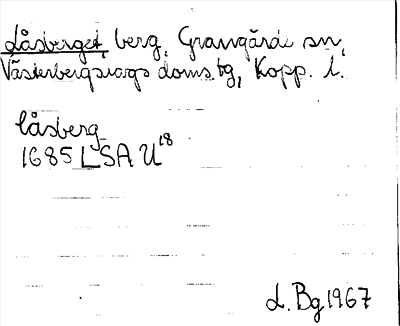 Låsberget, berg, Grangärde sn,
Västerbergslags doms.tg, Kopp. l.
låsberg
1685 LSA U18
L. Bg 1967